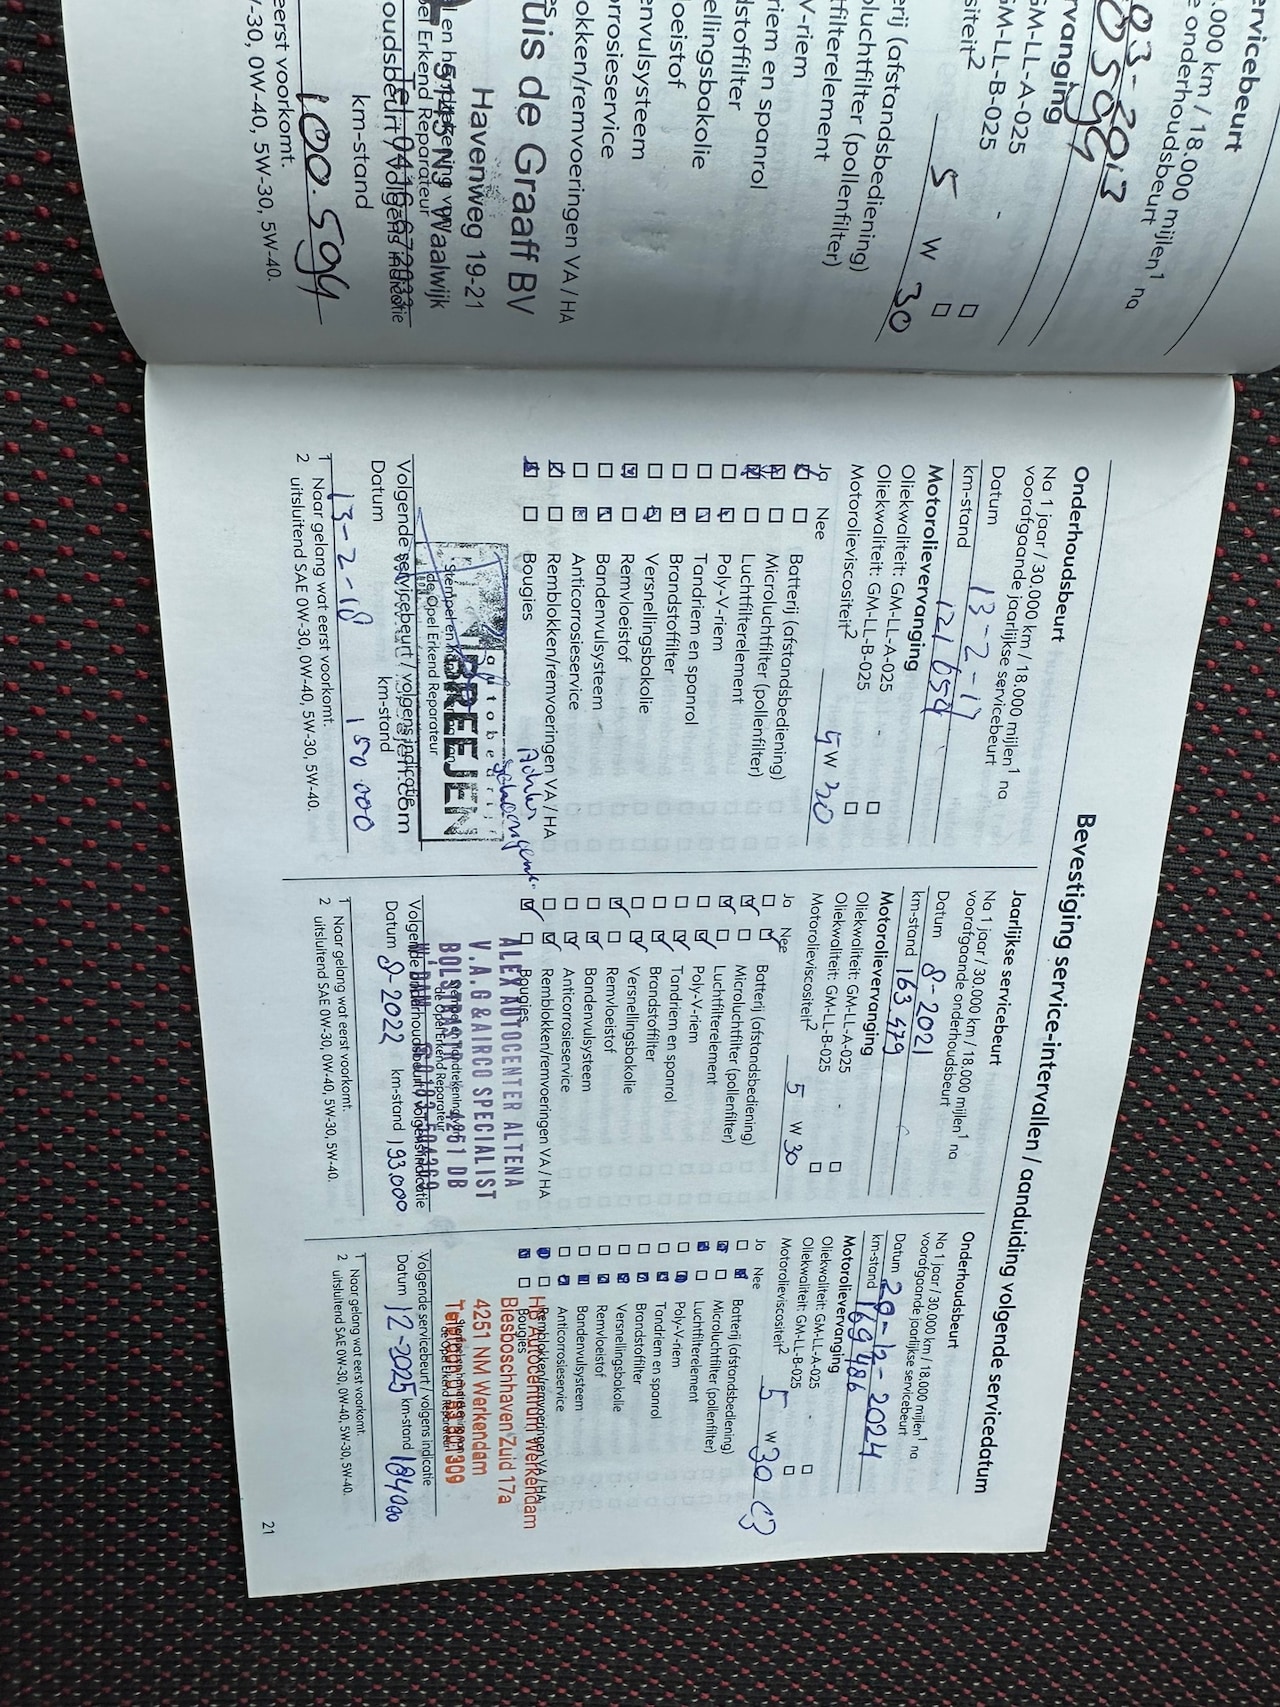 ervicebeurt
.000 km / 18.000 mijlen1 na
e onderhoudsbeurt
03-2013
rvanging
GM-LL-A-025
GM-LL-B-025
siteit2
5 W 30
erij (afstandsbediening)
oluchtfilter (pollenfilter)
tfilterelement
V-riem
riem en spanrol
dstoffilter
ellingsbakolie
oeistof
envulsysteem
rrosieservice
okken/remvoeringen VA / HA
es
uis de Graaff BV
Havenweg 19-21
5145 NJ Waalwijk
el Erkend Reparateur
oudsbeurt / volgens indicatie
km-stand
100.594
eerst voorkomt.
V-30, 0W-40, 5W-30, 5W-40.
Bevestiging service-intervallen / aanduiding volgende servicedatum
Onderhoudsbeurt
Na 1 jaar / 30.000 km / 18.000 mijlen1 na
voorafgaande jaarlijkse servicebeurt
Datum 13-2-17
km-stand 121654
Motorolievervanging
Oliekwaliteit: GM-LL-A-025
Oliekwaliteit: GM-LL-B-025
Motorolieviscositeit2 5W30
Ja Nee
Batterij (afstandsbediening)
Microluchtfilter (pollenfilter)
Luchtfilterelement
Poly-V-riem
Tandriem en spanrol
Brandstoffilter
Versnellingsbakolie
Remvloeistof
Bandenvulsysteem
Anticorrosieservice
Remblokken/remvoeringen VA / HA
Bougies
Achter
autobedrijf
BREEJEN
de Opel Erkend Reparateur
Volgende servicebeurt / volgens indicatie
Datum km-stand
13-2-18 150.000
1 Naar gelang wat eerst voorkomt.
2 uitsluitend SAE 0W-30, 0W-40, 5W-30, 5W-40.
Jaarlijkse servicebeurt
Na 1 jaar / 30.000 km / 18.000 mijlen1 na
voorafgaande onderhoudsbeurt
Datum 8-2021
km-stand 163.479
Motorolievervanging
Oliekwaliteit: GM-LL-A-025
Oliekwaliteit: GM-LL-B-025
Motorolieviscositeit2 5 W 30
Ja Nee
Batterij (afstandsbediening)
Microluchtfilter (pollenfilter)
Luchtfilterelement
Poly-V-riem
Tandriem en spanrol
Brandstoffilter
Versnellingsbakolie
Remvloeistof
Bandenvulsysteem
Anticorrosieservice
Remblokken/remvoeringen VA / HA
Bougies
ALEX AUTOCENTER ALTENA
V.A.G & AIRCO SPECIALIST
4251 DB
de Opel Erkend Reparateur
Volgende onderhoudsbeurt / volgens indicatie
Datum 8-2022 km-stand 193.000
1 Naar gelang wat eerst voorkomt.
2 uitsluitend SAE 0W-30, 0W-40, 5W-30, 5W-40.
Onderhoudsbeurt
Na 1 jaar / 30.000 km / 18.000 mijlen1 na
voorafgaande jaarlijkse servicebeurt
Datum 20-12-2024
km-stand 169486
Motorolievervanging
Oliekwaliteit: GM-LL-A-025
Oliekwaliteit: GM-LL-B-025
Motorolieviscositeit2 5 W 30 C3
Ja Nee
Batterij (afstandsbediening)
Microluchtfilter (pollenfilter)
Luchtfilterelement
Poly-V-riem
Tandriem en spanrol
Brandstoffilter
Versnellingsbakolie
Remvloeistof
Bandenvulsysteem
Anticorrosieservice
Remblokken/remvoeringen VA / HA
Bougies
Autocentrum Werkendam
Biesboschhaven Zuid 17a
4251 NM Werkendam
Volgende servicebeurt / volgens indicatie
Datum 12-2025 km-stand 184000
1 Naar gelang wat eerst voorkomt.
2 uitsluitend SAE 0W-30, 0W-40, 5W-30, 5W-40.
21